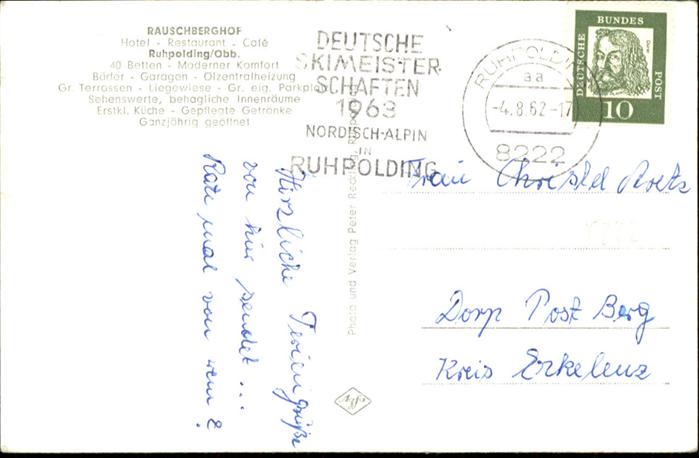 RAUSCHBERGHOF
Hotel - Restaurant - Café
Ruhpolding/Obb.
40 Betten - Moderner Komfort
Bäder - Garagen - Ölzentralheizung
Gr. Terrassen - Liegewiese - Gr. eig. Parkplatz
Sehenswerte, behagliche Innenräume
Erstkl. Küche - Gepflegte Getränke
Ganzjährig geöffnet
DEUTSCHE
SKIMEISTER-
SCHAFTEN
1963
NORDISCH-ALPIN
IN
RUHPOLDING
RUHPOLDING
aa
-4.8.62-17
8222
DEUTSCHE
BUNDES
POST
10
Herzliche Feriengrüße
von hier sendet...
Rate mal von wem?
Photo und Verlag Peter
Frau
Dorp Post Berg
Kreis Erkelenz